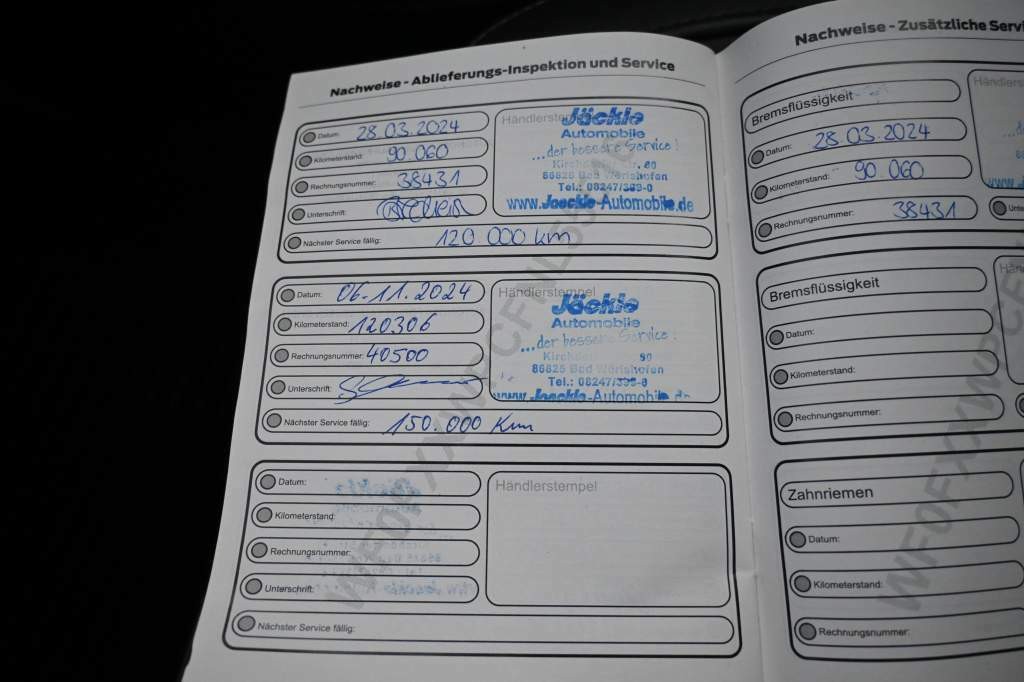 Nachweise - Ablieferungs-Inspektion und Service
Datum: 28.03.2024
Kilometerstand: 90.060
Rechnungsnummer: 38431
Unterschrift:
Nächster Service fällig: 120 000 km
Händlerstempel
Jäckle
Automobile
...der bessere Service!
86825 Bad Wörishofen
Tel.: 08247/
www.Jaeckle-Automobile.de
Datum: 06.11.2024
Kilometerstand: 120306
Rechnungsnummer: 40500
Unterschrift:
Nächster Service fällig: 150.000 Km
Händlerstempel
Jäckle
Automobile
...der bessere Service!
86825 Bad Wörishofen
Tel.: 08247/
www.Jaeckle-Automobile.de
Datum:
Kilometerstand:
Rechnungsnummer:
Unterschrift:
Nächster Service fällig:
Händlerstempel
Nachweise - Zusätzliche
Bremsflüssigkeit
Datum: 28.03.2024
Kilometerstand: 90 060
Rechnungsnummer: 38431
Bremsflüssigkeit
Datum:
Kilometerstand:
Rechnungsnummer:
Zahnriemen
Datum:
Kilometerstand:
Rechnungsnummer: